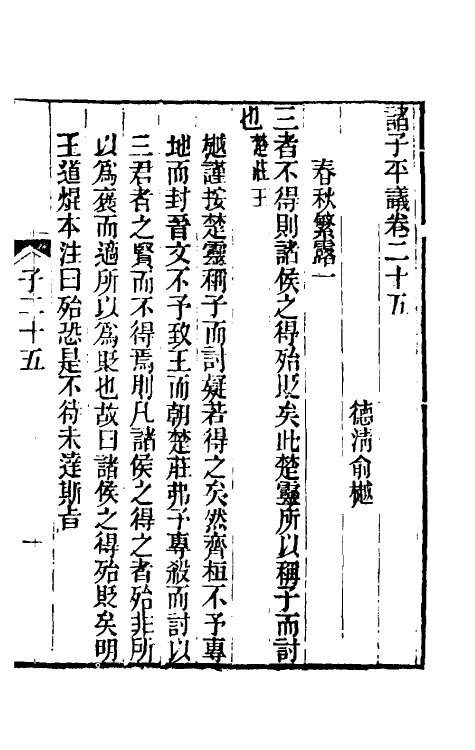 諸子平議卷二十五
德清俞樾
春秋繁露一
三者不得則諸侯之得殆貶矣此楚靈所以稱子而討
也楚莊王
樾謹按楚靈稱子而討疑若得之矣然齊桓不予專
地而封晉文不予致王而朝楚莊弗予專殺而討以
三君者之賢而不得焉則凡諸侯之得之者殆非所
以爲褒而適所以爲貶也故曰諸侯之得殆貶矣明
王道焜本注曰殆恐是不待未達斯旨
子二十五
一